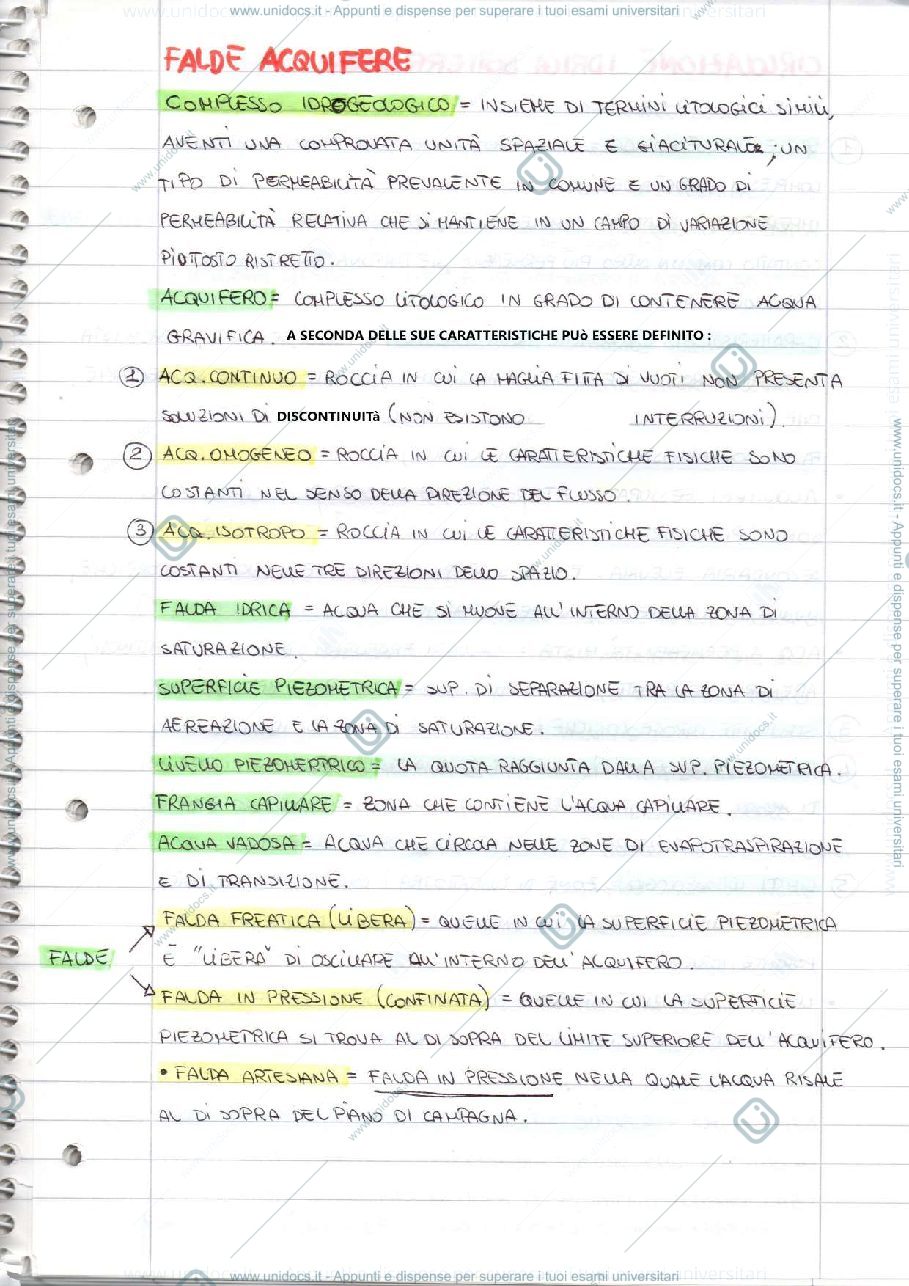 www.unidocs.it - Appunti e dispense per superare i tuoi esami universitari
FALDE ACQUIFERE
COMPLESSO IDROGEOLOGICO = INSIEME DI TERMINI LITOLOGICI SIMILI,
AVENTI UNA COMPROVATA UNITÀ SPAZIALE E GIACITURALE, UN
TIPO DI PERMEABILITÀ PREVALENTE IN COMUNE E UN GRADO DI
PERMEABILITÀ RELATIVA CHE SI MANTIENE IN UN CAMPO DI VARIAZIONE
PIUTTOSTO RISTRETTO.
ACQUIFERO = COMPLESSO LITOLOGICO IN GRADO DI CONTENERE ACQUA
GRAVIFICA. A SECONDA DELLE SUE CARATTERISTICHE PUò ESSERE DEFINITO :
1 ACQ. CONTINUO = ROCCIA IN CUI LA MAGLIA FITTA DI VUOTI NON PRESENTA
SOLUZIONI DI DISCONTINUITà (NON ESISTONO INTERRUZIONI).
2 ACQ. OMOGENEO = ROCCIA IN CUI LE CARATTERISTICHE FISICHE SONO
COSTANTI NEL SENSO DELLA DIREZIONE DEL FLUSSO.
3 ACQ. ISOTROPO = ROCCIA IN CUI LE CARATTERISTICHE FISICHE SONO
COSTANTI NELLE TRE DIREZIONI DELLO SPAZIO.
FALDA IDRICA = ACQUA CHE SI MUOVE ALL'INTERNO DELLA ZONA DI
SATURAZIONE.
SUPERFICIE PIEZOMETRICA = SUP. DI SEPARAZIONE TRA LA ZONA DI
AEREAZIONE E LA ZONA DI SATURAZIONE.
LIVELLO PIEZOMERTRICO = LA QUOTA RAGGIUNTA DALLA SUP. PIEZOMETRICA.
FRANGIA CAPILLARE = ZONA CHE CONTIENE L'ACQUA CAPILLARE.
ACQUA VADOSA = ACQUA CHE CIRCOLA NELLE ZONE DI EVAPOTRASPIRAZIONE
E DI TRANSIZIONE.
FALDA FREATICA (LIBERA) = QUELLE IN CUI LA SUPERFICIE PIEZOMETRICA
FALDE È "LIBERA" DI OSCILLARE ALL'INTERNO DELL'ACQUIFERO.
FALDA IN PRESSIONE (CONFINATA) = QUELLE IN CUI LA SUPERFICIE
PIEZOMETRICA SI TROVA AL DI SOPRA DEL LIMITE SUPERIORE DELL'ACQUIFERO.
• FALDA ARTESIANA = FALDA IN PRESSIONE NELLA QUALE L'ACQUA RISALE
AL DI SOPRA DEL PIANO DI CAMPAGNA.
www.unidocs.it - Appunti e dispense per superare i tuoi esami universitari